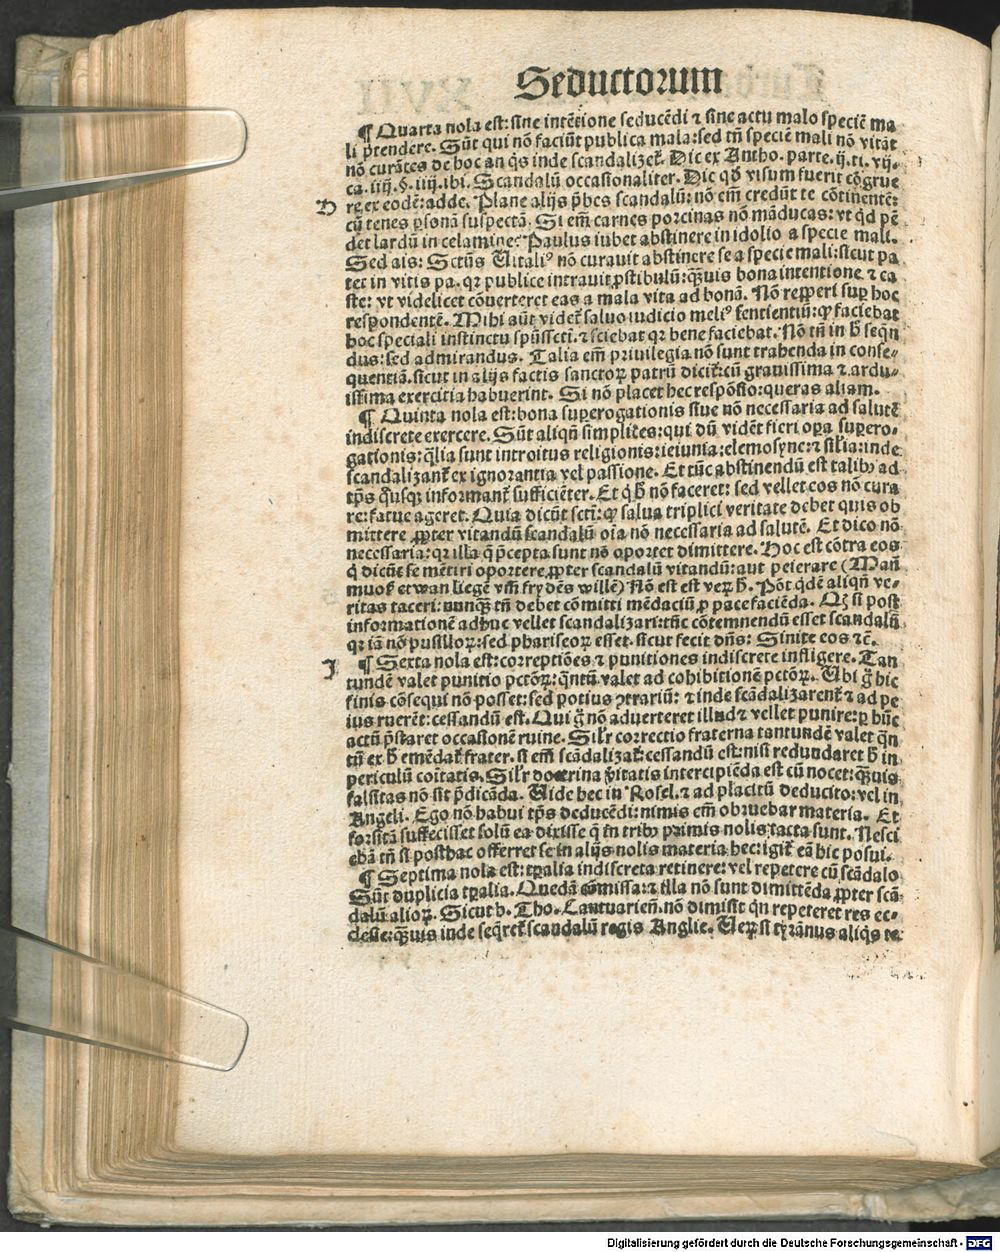 Seductorum
¶ Quarta nola est: sine intẽtione seducẽdi ⁊ sine actu malo speciẽ ma
li p̃tendere. Sũt qui nõ faciũt publica mala: sed tñ speciẽ mali nõ vitãt
nõ curãtes de hoc an q̃s inde scandalizet̃. Dic ex Antho. parte. ij. ti. vij.
ca. iiij. §. iiij. ibi. Scandalũ occasionaliter. Dic qd̕ visum fuerit cõgrue
H
re ex eodẽ: adde. Plane alijs p̃bes scandalũ: nõ em̃ credũt te cõtinentẽ:
cũ tenes ꝑsonã suspectã. Si em̃ carnes porcinas nõ mãducas: vt qd pẽ
det lardũ in celamine? Paulus iubet abstinere in idolio a specie mali.
Sed ais: Sctũs Uitaliꝰ nõ curauit abstinere se a specie mali: sicut pa
tet in vitis pa. qꝛ publice intrauit ꝓstibulũ: q̃uis bona intentione ⁊ ca
ste: vt videlicet cõuerteret eas a mala vita ad bonã. Nõ reꝑperi suꝑ hoc
respondentẽ. Mihi aũt videt̃ saluo iudicio meliꝰ sentientiũ: ꝙ faciebat
hoc speciali instinctu spũssctĩ. ⁊ sciebat qꝛ bene faciebat. Nõ tñ in h̕ seqñ
dus: sed admirandus. Talia em̃ priuilegia nõ sunt trahenda in conse⸗
quentiã. sicut in alijs factis sanctoꝝ patrũ dicit̃: cũ grauissima ⁊ ardu⸗
issima exercitia habuerint. Si nõ placet hec respõsio: queras aliam.
¶ Quinta nola est: bona suꝑerogationis siue nõ necessaria ad salutẽ
indiscrete exercere. Sũt aliqñ simplices: qui dũ vidẽt fieri oꝑa suꝑero⸗
gationis: q̃lia sunt introitus religionis: ieiunia: elemosyne: ⁊ sil̃ia: inde
scandalizant̃ ex ignorantia vel passione. Et tũc abstinendũ est talibꝫ ad
tp̃s q̃usqꝫ informant̃ sufficiẽter. Et q̃ h̕ nõ faceret: sed vellet eos nõ cura
re: fatue ageret. Quia dicũt sctĩ: ꝙ salua triplici veritate debet quis ob
mittere ꝓpter vitandũ scandalũ oĩa nõ necessaria ad salutẽ. Et dico nõ
necessaria: qꝛ illa q̃ p̃cepta sunt nõ oportet dimittere. Hoc est cõtra eos
q̃ dicũt se mẽtiri oportere ꝓpter scandalũ vitandũ: aut peierare (Mañ
muoß etwan liegẽ vm̃ frydẽs willẽ) Nõ est est veꝝ h̕. Põt q̃dẽ aliqñ ve⸗
ritas taceri: nunqꝫ tñ debet cõmitti mẽdaciũ ꝓ pace faciẽda. Qꝫ si post
informationẽ adhuc vellet scandalizari: tũc cõtemnendũ esset scandalũ
qꝛ iã nõ pusilloꝝ: sed phariseoꝝ esset. sicut fecit dñs: Sinite eos ⁊c̃.
I
¶ Sexta nola est: correptiões ⁊ punitiones indiscrete infligere. Tan
tundẽ valet punitio pctõꝝ: q̃ntũ valet ad cohibitionẽ pctõꝝ. Ubi g̃ hic
finis cõsequi nõ posset: sed potius ꝯtrariũ: ⁊ inde scãdalizarent̃ ⁊ ad pe
ius ruerẽt: cessandũ est. Qui g̃ nõ aduerteret illud ⁊ vellet punire: ꝑ hũc
actũ p̃staret occasionẽ ruine. Sil̃r correctio fraterna tantundẽ valet q̃n
tũ ex h̕ emẽdat̃ frater. si em̃ scãdalizat̃: cessandũ est: nisi redundaret h̕ in
periculũ cõitatis. Sil̃r doctrina v̕itatis intercipiẽda est cũ nocet: q̃uis
falsitas nõ sit p̃dicãda. Uide hec in Rosel. ⁊ ad placitũ deducito: vel in
Angeli. Ego nõ habui tp̃s deducẽdi: nimis em̃ obruebar materia. Et
forsitã suffecisset solũ ea dixisse q̃ in tribꝫ primis nolis tacta sunt. Nesci
ebã tñ si posthac offerret se in alijs nolis materia hec: igit̃ eã hic posui.
¶ Septima nola est: tꝑalia indiscreta retinere: vel repetere cũ scãdalo
Sũt duplicia tꝑalia. Quedã cõmissa: ⁊ illa nõ sunt dimittẽda ꝓpter scã
dalũ alioꝝ. Sicut b. Tho. Cantuarieñ. nõ dimisit qñ repeteret res ec⸗
clesie: q̃uis inde seq̃ret̃ scandalũ regis Anglie. Ueꝝ si tyrãnus aliq̃s te
Digitalisierung gefördert durch die Deutsche Forschungsgemeinschaft - DFG